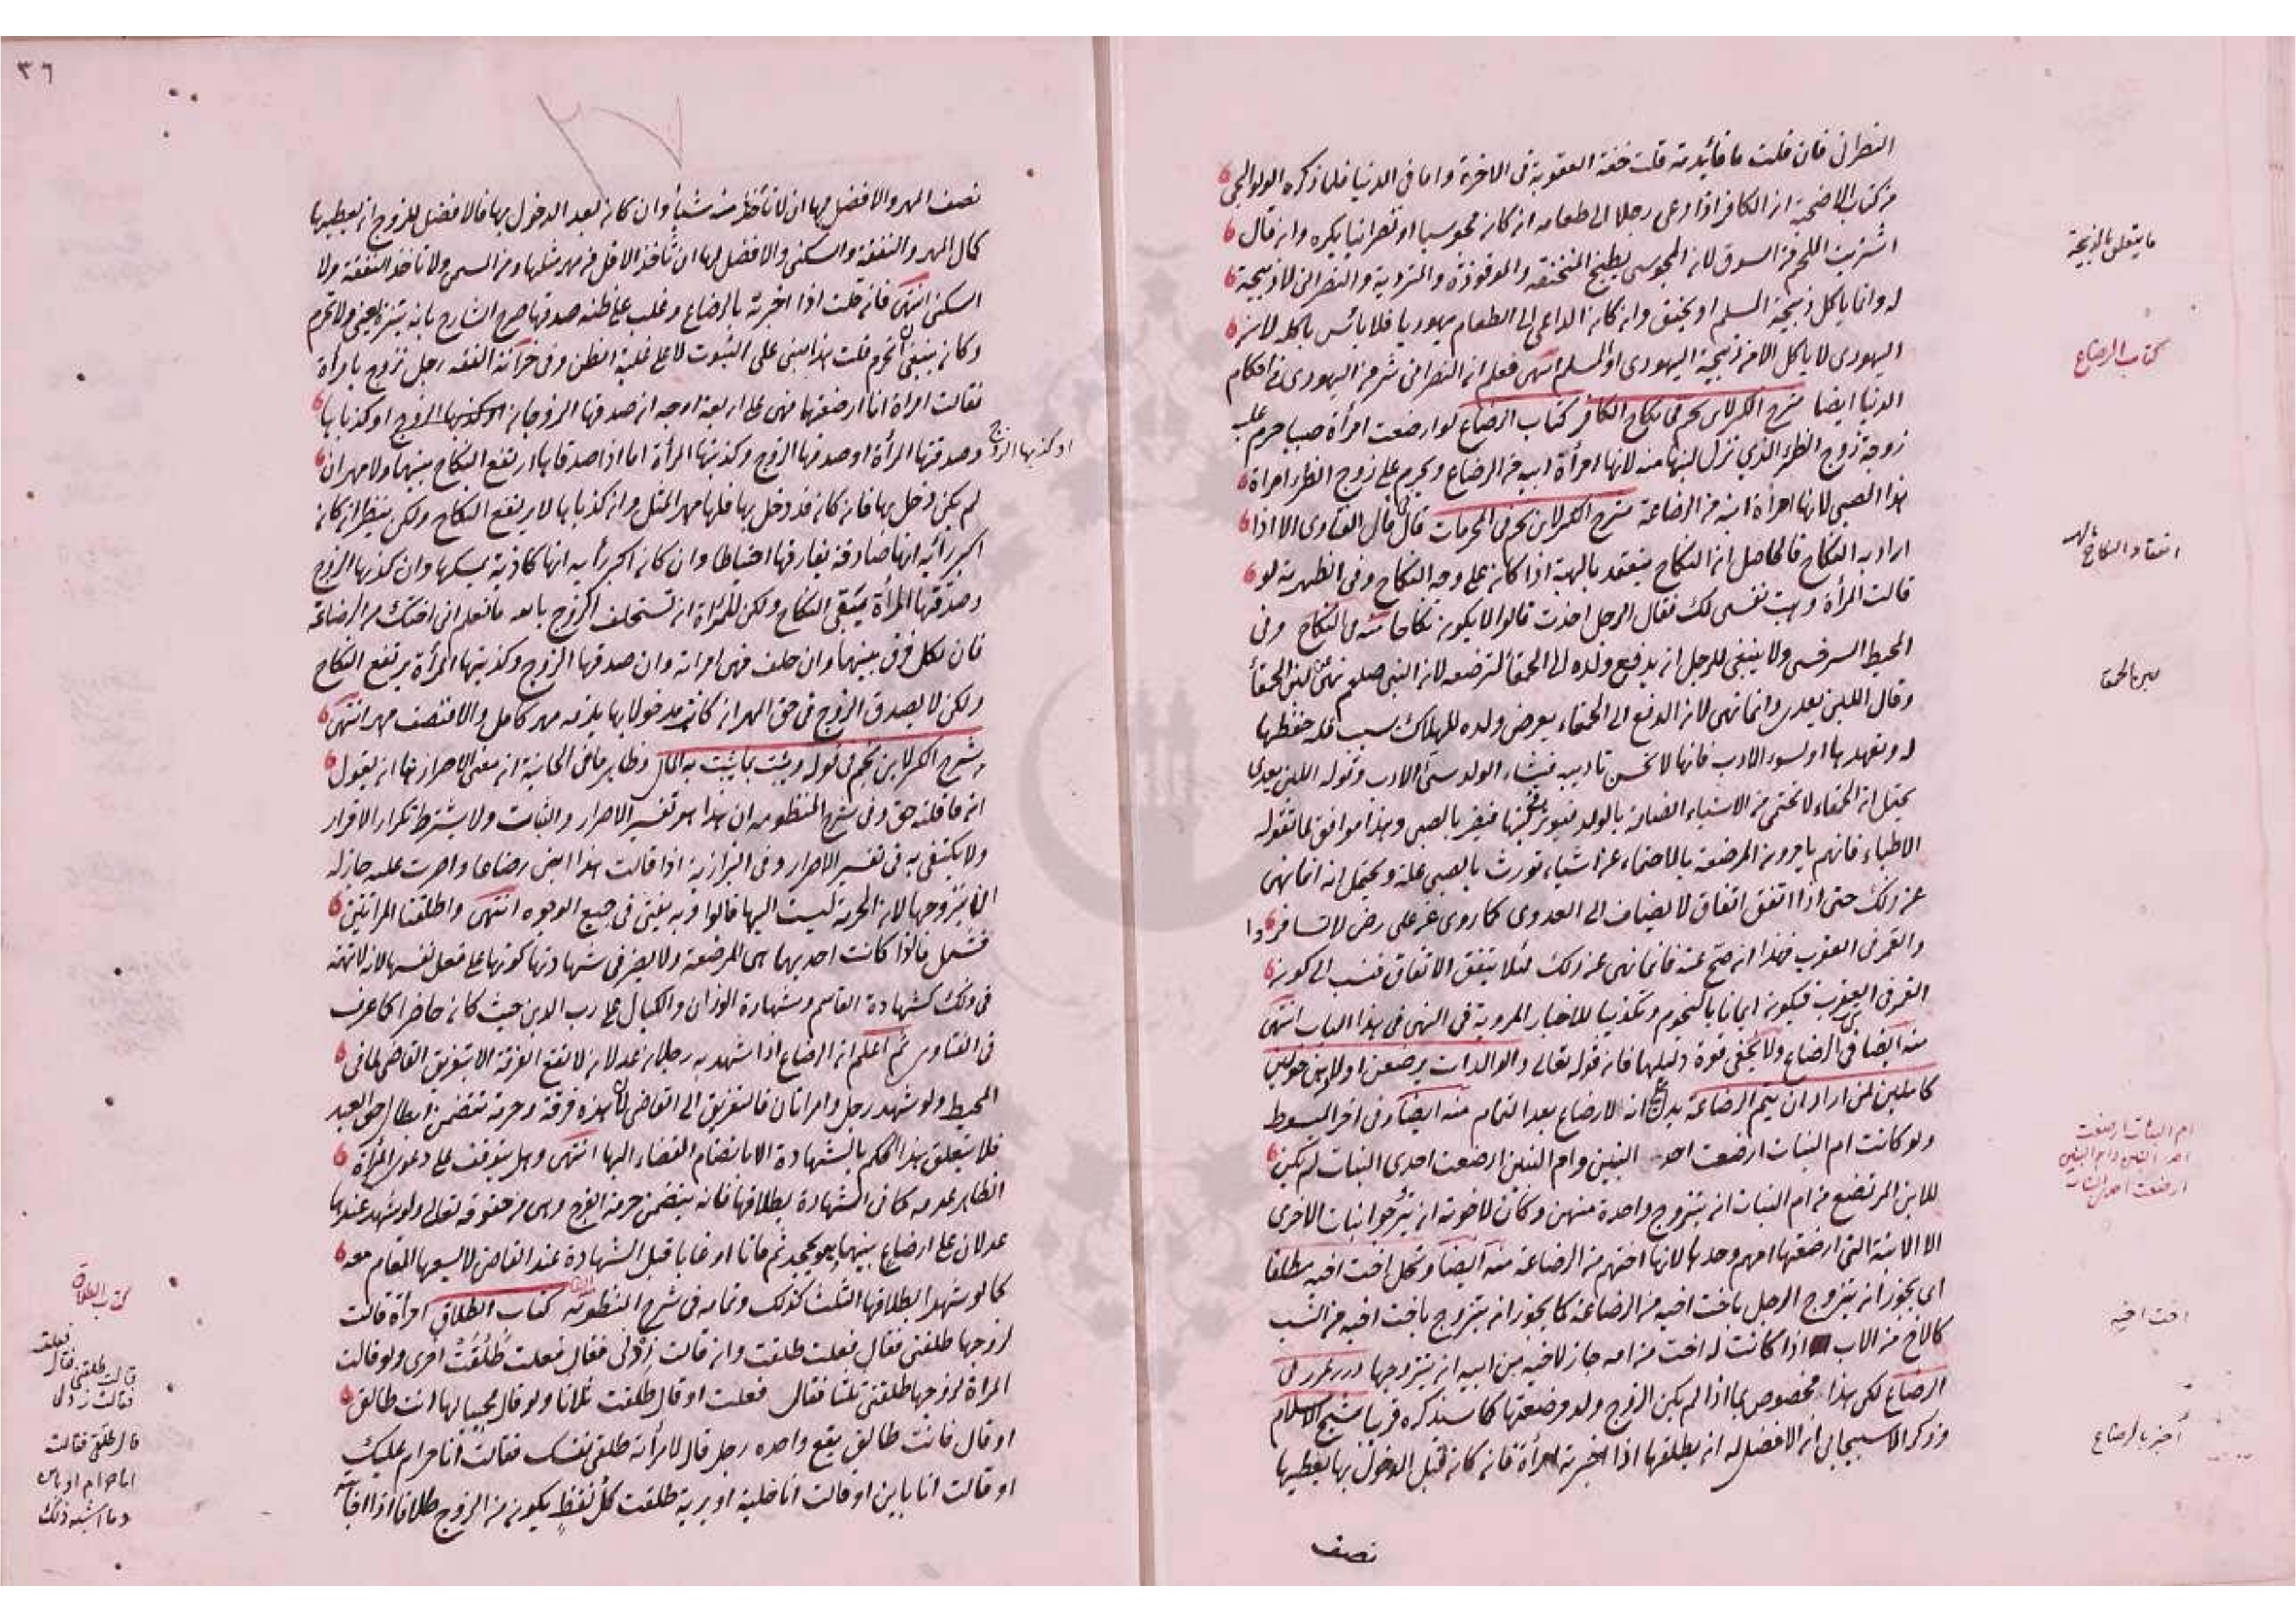 النصرانى فان قلت ما فائدته قلت خفة العقوبة فى الاخرة واما فى الدنيا فلما ذكره الولوالجى
من كتاب الاضحية ان الكافر اذا دعى رجلا الى طعامه ان كان مجوسيا او نصرانيا يكره وان قال
اشتريت اللحم من السوق لان المجوسى يطبخ المنخنقة والموقوذة والمتردية والنصرانى لا ذبيحة
له وانما ياكل ذبيحة المسلم او يخنق وان كان الداعى الى الطعام يهوديا فلا بأس باكله لان
اليهودى لا ياكل الا من ذبيحة اليهودى او المسلم انتهى فعلم ان النصرانى شر من اليهودى فى احكام
الدنيا ايضا شرح الكنز لابن نجيم فى نكاح الكافر كتاب الرضاع لو ارضعت امرأة صبيا حرم عليه
زوجة زوج الظئر الذى نزل لبنها منه لانها امرأة ابيه من الرضاع ويحرم على زوج الظئر امراة
هذا الصبى لانها امرأة ابنه من الرضاعة شرح الكنز لابن نجيم فى المحرمات قال فى الفتاوى الا اذا
اراد به النكاح فالحاصل ان النكاح ينعقد بالهبة اذا كان على وجه النكاح وفى الظهيرية لو
قالت المرأة وهبت نفسى لك فقال الرجل اخذت قالوا لا يكون نكاحا منه فى النكاح وفى
المحيط السرخسى ولا ينبغى للرجل ان يدفع ولده الى الحمقأ لترضعه لان النبى صلعم نهى عن لبن الحمقأ
وقال اللبن يعدى وانما نهى لان الدفع الى الحمقاء يعرض ولده للهلاك بسبب قلة حفظها
له وتعهدها او لسوء الادب فانها لا تحسن تاديبه فينشاء الولد سئ الادب وقوله اللبن يعدى
يحتمل ان الحمقاء لا تحتمى من الاشياء الضارة بالولد فيوثر فى لبنها فيضر بالصبى وهذا موافق لما تقوله
الاطباء فانهم يامرون المرضعة بالاحتماء عن اشياء تورث بالصبى علة ويحتمل انه انما نهى
عن ذلك حتى اذا اتفق اتفاق لا يضاف الى العدوى كما روى عن على رض لا تسافروا
والقمر فى العقرب فهذا ان صح عنه فانما نهى عن ذلك لئلا يتفق الاتفاق فنسب الى كون
القمر فى العقرب فيكون ايمانا بالنجوم وتكذيبا للاخبار المروية فى النهى فى هذا الباب انتهى
منه ايضا فى الرضاع ولا يخفى قوة دليلهما فان قوله تعالى والوالدات يرضعن اولادهن حولين
كاملين لمن اراد ان يتم الرضاعة يدل على انه لا رضاع بعد التمام منه ايضا وفى اخر المبسوط
ولو كانت ام البنات ارضعت احد البنين وام البنين ارضعت احدى البنات لم يكن
للابن المرتضع من ام البنات ان يتزوج واحدة منهن وكان لاخوته ان يتزوجوا بنات الاخرى
الا الابنة التى ارضعتها امهم وحدها لانها اختهم من الرضاعة منه ايضا وتحل اخت اخيه مطلقا
اى يجوز ان يتزوج الرجل باخت اخيه من الرضاعة كما يجوز ان يتزوج باخت اخيه من النسب
كالاخ من الاب اذا كانت له اخت من امه جاز لاخيه من ابيه ان يتزوجها درر غرر فى
الرضاع لكن هذا مخصوص بما اذا لم يكن الزوج ولد مرضعتها كما سنذكره قريبا شيخ الاسلام
وذكر الاسبيجابى ان الافضل له ان يطلقها اذا اخبرته امرأة فان كان قبل الدخول بها يعطيها
نصف
ما يتعلق بالذبيحة
كتاب الرضاع
انعقاد النكاح بالهبة
لبن الحمقا
ام البنات ارضعت
احد البنين وام البنين
ارضعت احدى البنات
اخت اخيه
اخبر بالرضاع
٣٦
نصف المهر والافضل لها ان لا تأخذ منه شيأ وان كان بعد الدخول بها فالافضل للزوج ان يعطيها
كمال المهر والنفقة والسكنى والافضل لها ان تأخذ الاقل من مهر مثلها ومن المسمى ولا تاخذ النفقة ولا
السكنى انتهى فان قلت اذا اخبرته بالرضاع وغلب على ظنه صدقها صرح الشارح بانه يتنزه يعنى ولا تحرم
وكان ينبغى ان تحرم قلت هذا مبنى على الثبوت لا على غلبة الظن وفى خزانة الفقه رجل تزوج بامرأة
فقالت امراة انا ارضعتهما فهى على اربعة اوجه ان صدقها الزوجان او كذبها الزوج او كذباها
او كذبها الزوج
وصدقتها المرأة او صدقها الزوج وكذبتها المرأة اما اذا صدقاها ارتفع النكاح بينهما ولا مهر ان
لم يكن دخل بها فان كان قد دخل بها فلها مهر المثل وان كذباها لا يرتفع النكاح ولكن ينظر ان كان
اكبر رأيه انها صادقة يفارقها احتياطا وان كان اكبر رأيه انها كاذبة يمسكها وان كذبها الزوج
وصدقتها المرأة يبقى النكاح ولكن للمرأة ان تستحلف الزوج بالله ما تعلم انى اختك من الرضاعة
فان نكل فرق بينهما وان حلف فهى امراته وان صدقها الزوج وكذبتها المرأة يرتفع النكاح
ولكن لا يصدق الزوج فى حق المهر ان كانت مدخولا بها يلزمه مهر كامل والا فنصف مهر انتهى
من شرح الكنز لابن نجيم فى قوله ويثبت بما يثبت به المال وظاهر ما فى الخانية ان معنى الاصرار هنا ان يقول
ان ما قلته حق وفى شرح المنظومه ان هذا هو تفسير الاصرار والثبات ولا يشترط تكرار الاقرار
ولا يكتفى به فى تفسير الاصرار وفى البزازية اذا قالت هذا ابنى رضاعا واصرت عليه جاز له
ان يتزوجها لان الحرمة ليست اليها قالوا وبه يفتى فى جميع الوجوه انتهى واطلقنا المراتين
فشمل ما اذا كانت احديهما هى المرضعة ولا يضر فى شهادتها كونها على فعل نفسها لانه لا تهمة
فى ذلك كشهادة القاسم وشهادة الوزان والكيال على رب الدين حيث كان حاضرا كما عرف
فى الفتاوى ثم اعلم ان الرضاع اذا شهد به رجلان عدلان لا تقع الفرقة الا بتفريق القاضى لما فى
المحيط ولو شهد رجل وامراتان فالتفريق الى القاضى لان هذه فرقة وحرمة تتضمن ابطال حق العبد
فلا يتعلق هذا الحكم بالشهادة الا بانضمام القضاء اليها انتهى وهل يتوقف على دعوى المرأة
الظاهر عدمه كما فى الشهادة بطلاقها فانه يتضمن حرمة الفرج وهى من حقوقه تعالى ولو شهد عندها
عدلان على ارضاع بينهما وهو يجحد ثم ماتا او غابا قبل الشهادة عند القاضى لا يسعها المقام معه
كما لو شهدا بطلاقها الثلث كذلك وتمامه فى شرح المنظومه كتاب الطلاق امرأة قالت
لزوجها طلقنى فقال فعلت طلقت وان قالت زدنى فقال فعلت طلقت اخرى ولو قالت
المراة لزوجها طلقنى ثلثا فقال فعلت او قال طلقت ثلاثا ولو قال مجيبا لها انت طالق
او قال فانت طالق يقع واحده رجل قال لامرأته طلقى نفسك فقالت انا حرام عليك
او قالت انا باين او قالت انا خلية او برية طلقت كل لفظ يكون من الزوج طلاقا اذا
كتاب الطلاق
قالت طلقنى فقال فعلت
فقالت زدنى
قال طلقى فقالت
انا حرام او باين
وما اشبه ذلك